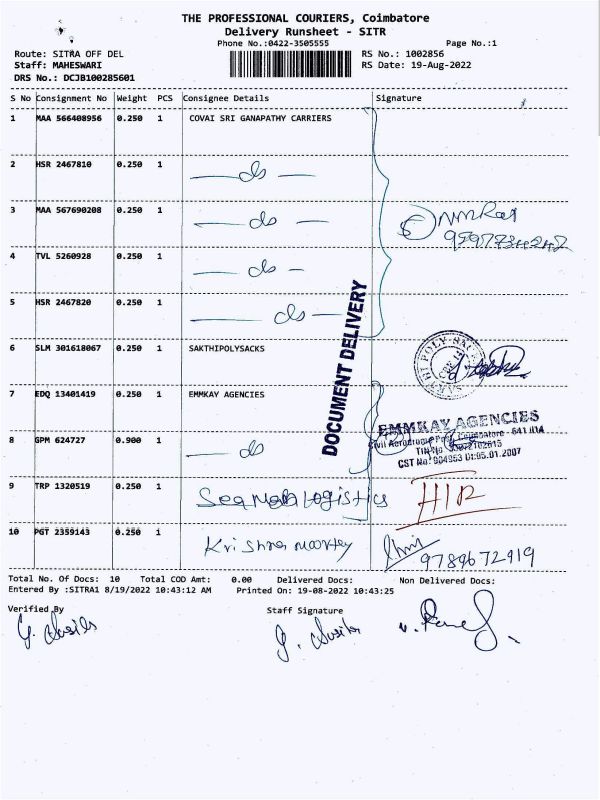 THE PROFESSIONAL COURIERS, Coimbatore
Delivery Runsheet - SITR
Phone No.:0422-3505555 Page No.:1
Route: SITRA OFF DEL RS No.: 1002856
Staff: MAHESWARI RS Date: 19-Aug-2022
DRS No.: DCJB100285601
S No Consignment No Weight PCS Consignee Details Signature
1 MAA 566408956 0.250 1 COVAI SRI GANAPATHY CARRIERS
2 HSR 2467810 0.250 1 — do —
3 MAA 567690208 0.250 1 — do —
4 TVL 5260928 0.250 1 — do —
5 HSR 2467820 0.250 1 — do —
DOCUMENT DELIVERY
6 SLM 301618067 0.250 1 SAKTHIPOLYSACKS
7 EDQ 13401419 0.250 1 EMMKAY AGENCIES
EMMKAY AGENCIES
8 GPM 624727 0.900 1 — do
CST No: 904953 Dt:05.01.2007
9 TRP 1320519 0.250 1 Logistics
10 PGT 2359143 0.250 1 Krishna moorthy 9789672919
Total No. Of Docs: 10 Total COD Amt: 0.00 Delivered Docs: Non Delivered Docs:
Entered By :SITRA1 8/19/2022 10:43:12 AM Printed On: 19-08-2022 10:43:25
Verified By Staff Signature